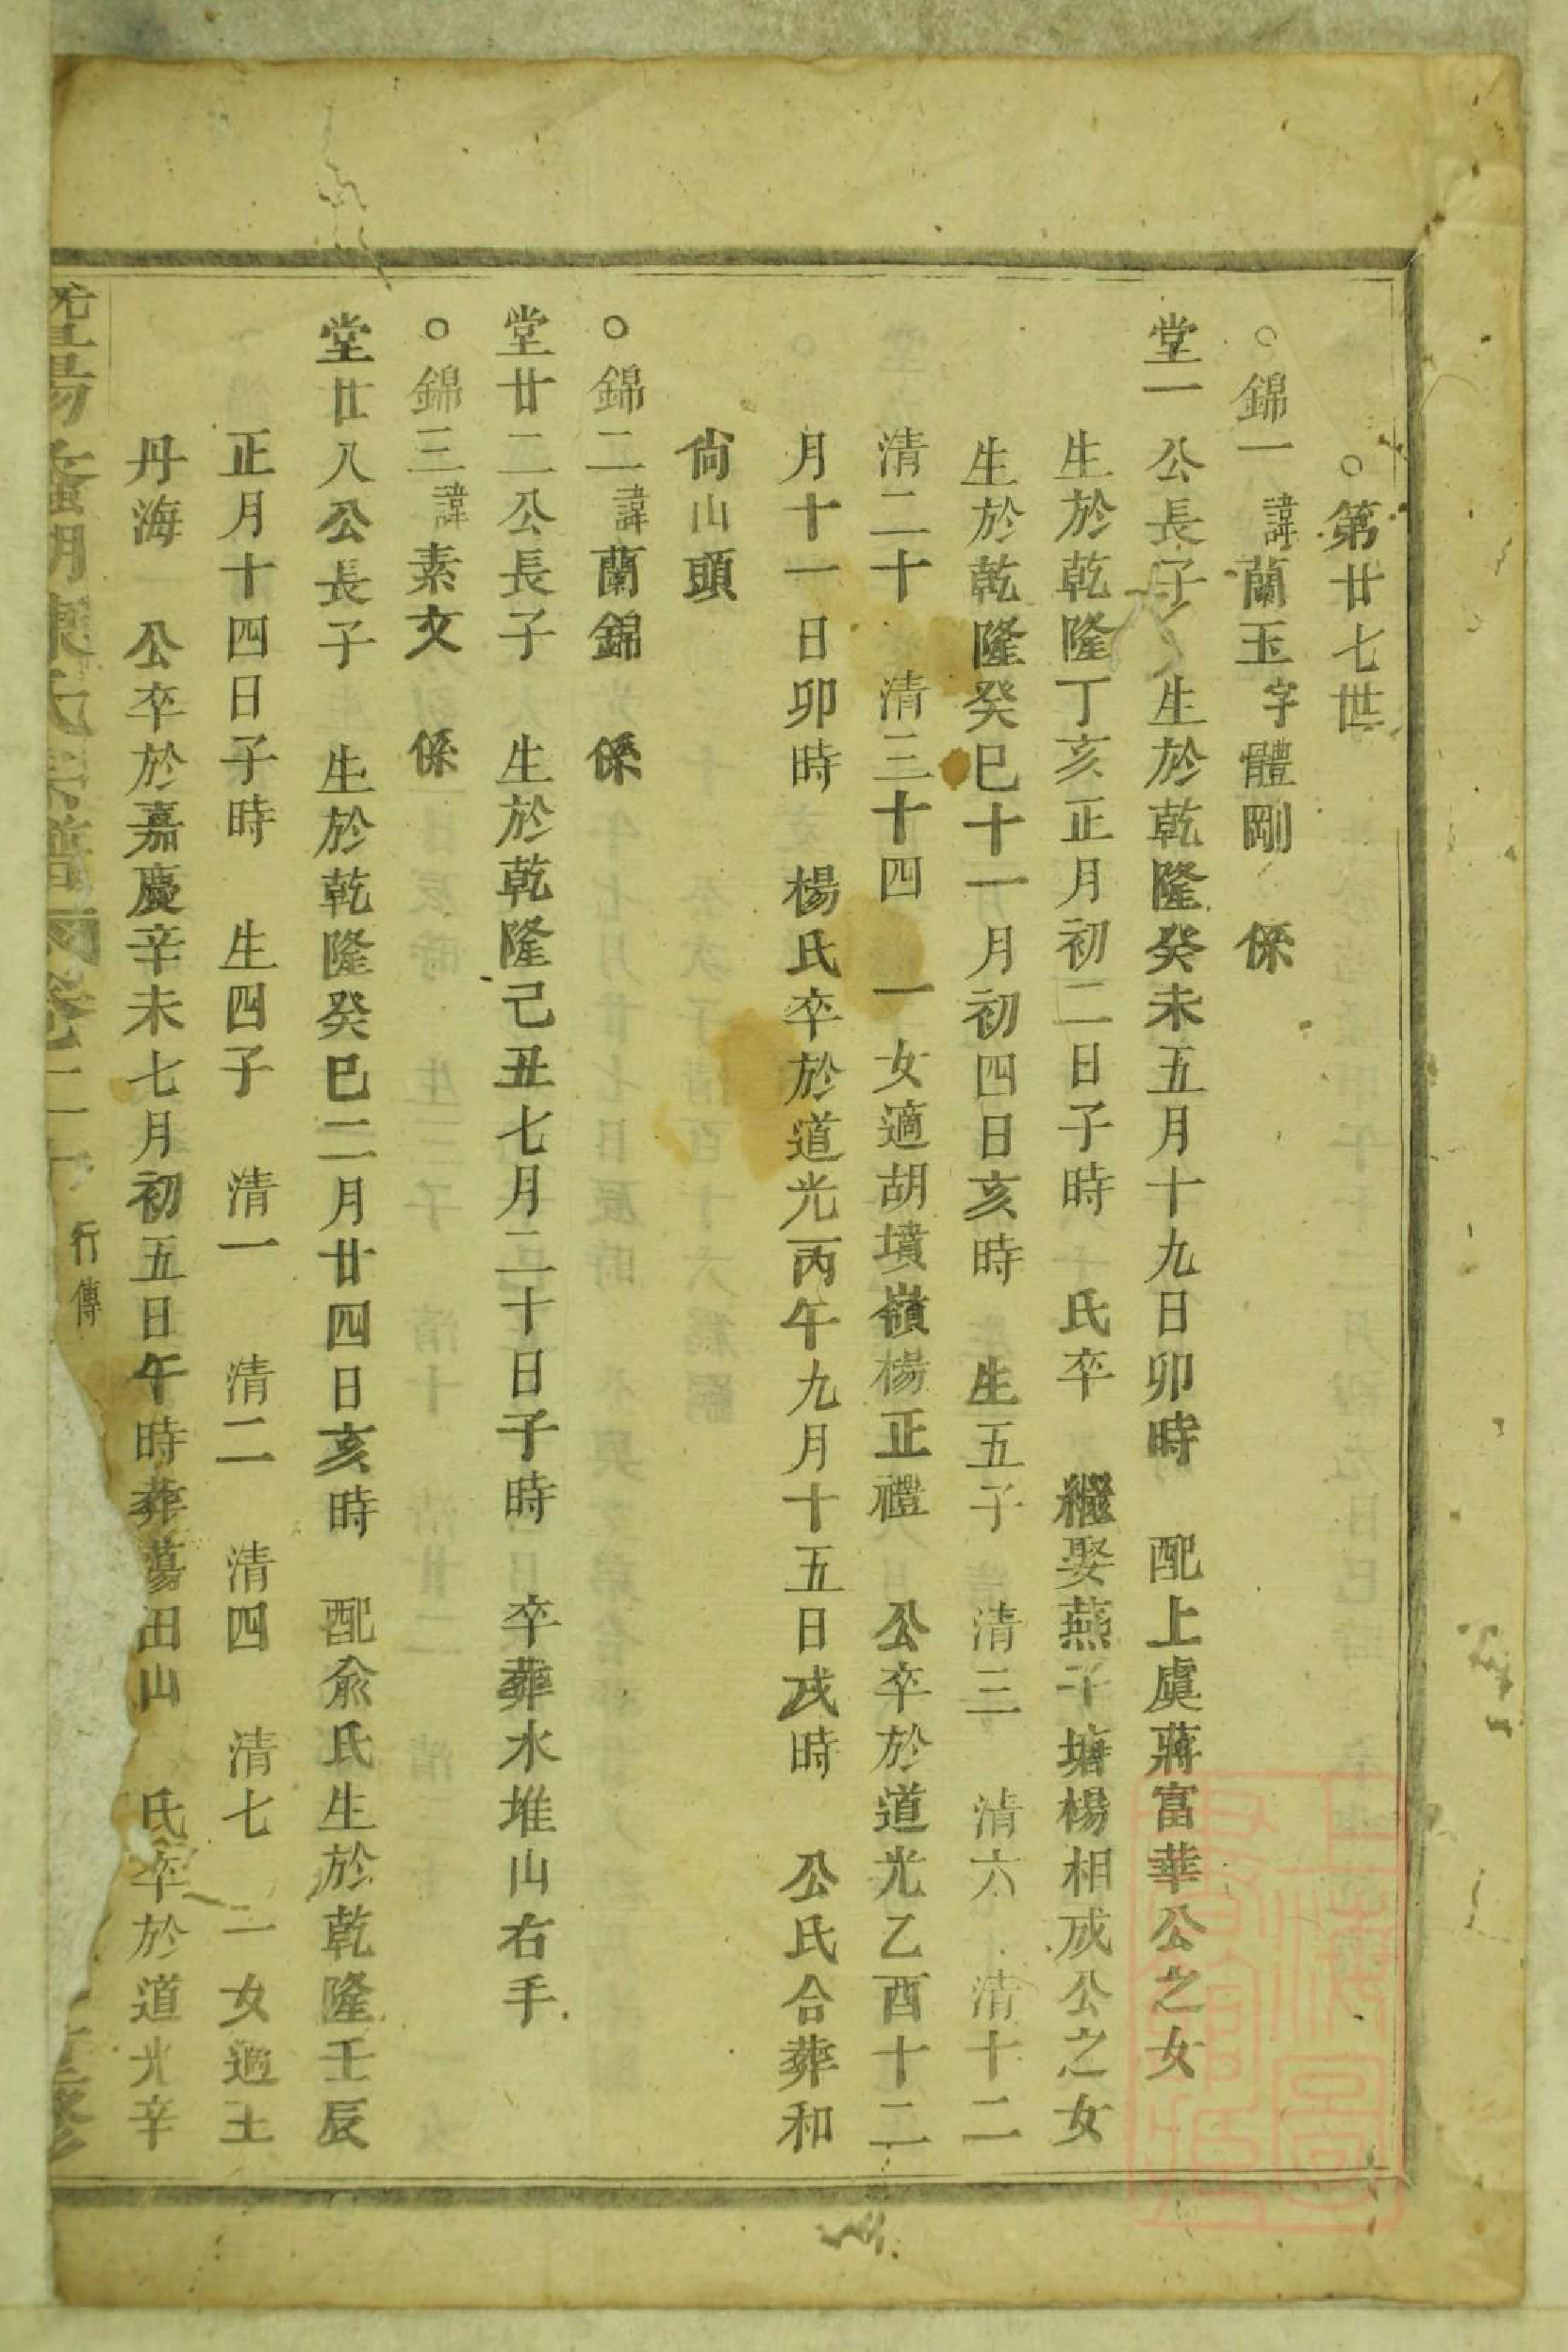 ○第廿七世
○錦一諱蘭玉字體剛 係
堂一公長子 生於乾隆癸未五月十九日卯時 配上虞蔣富華公之女
生於乾隆丁亥正月初二日子時 氏卒 繼娶燕子塘楊相成公之女
生於乾隆癸巳十一月初四日亥時 生五子 清三 清六 清十二
清二十 清三十四 一女適胡墳嶺楊正禮 公卒於道光乙酉十二
月十一日卯時 楊氏卒於道光丙午九月十五日戌時 公氏合葬和
尙山頭
○錦二諱蘭錦 係
堂廿二公長子 生於乾隆己丑七月二十日子時 卒葬水堆山右手
○錦三諱素文 係
堂廿八公長子 生於乾隆癸巳二月廿四日亥時 配俞氏生於乾隆壬辰
正月十四日子時 生四子 清一 清二 清四 清七 一女適王
丹海 公卒於嘉慶辛未七月初五日午時葬蕩田山 氏卒於道光辛
行傳
上海圖書館藏